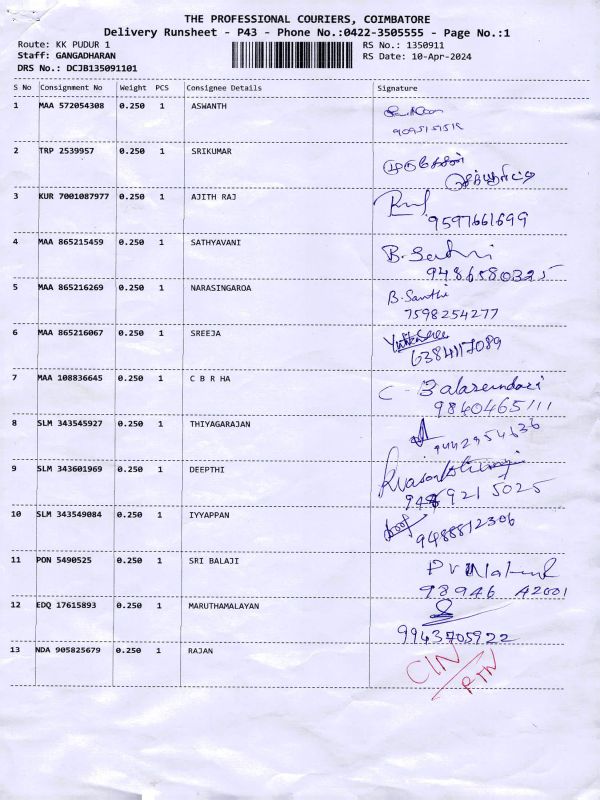 THE PROFESSIONAL COURIERS, COIMBATORE
Delivery Runsheet - P43 - Phone No.:0422-3505555 - Page No.:1
Route: KK PUDUR 1 RS No.: 1350911
Staff: GANGADHARAN RS Date: 10-Apr-2024
DRS No.: DCJB135091101
S No Consignment No Weight PCS Consignee Details Signature
1 MAA 572054308 0.250 1 ASWANTH
2 TRP 2539957 0.250 1 SRIKUMAR முருகேசன்
3 KUR 7001087977 0.250 1 AJITH RAJ
9597661699
4 MAA 865215459 0.250 1 SATHYAVANI
9486580325
5 MAA 865216269 0.250 1 NARASINGAROA B. Santhi
7598254277
6 MAA 865216067 0.250 1 SREEJA
6384117089
7 MAA 108836645 0.250 1 C B R HA
9840465111
8 SLM 343545927 0.250 1 THIYAGARAJAN
9442954636
9 SLM 343601969 0.250 1 DEEPTHI
10 SLM 343549084 0.250 1 IYYAPPAN
9488812306
11 PON 5490525 0.250 1 SRI BALAJI
98946 42001
12 EDQ 17615893 0.250 1 MARUTHAMALAYAN
9943705922
13 NDA 905825679 0.250 1 RAJAN CIN
RTN